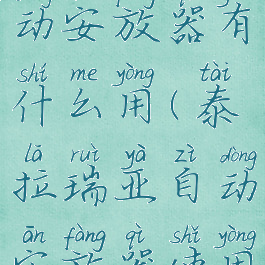 动安放器有
shí me yòng tài
什么用(泰
lā ruì yà zì dòng
拉瑞亚自动
ān fàng qì shǐ yòng
安放器使用